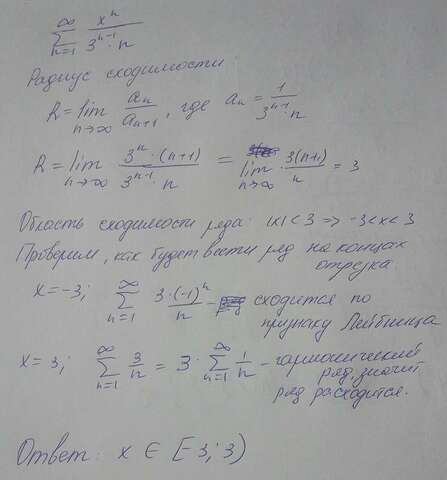 ∞ ∑ n=1 xⁿ / 3ⁿ⁻¹·n
Радиус сходимости:
R = lim n→∞ aₙ / aₙ₊₁, где aₙ = 1 / 3ⁿ⁻¹·n
R = lim n→∞ 3ⁿ·(n+1) / 3ⁿ⁻¹·n = lim n→∞ 3(n+1) / n = 3
Область сходимости ряда: |x|<3 => -3<x<3
Проверим, как будет вести ряд на концах
отрезка.
x=-3; ∞ ∑ n=1 3·(-1)ⁿ / n - сходится по
признаку Лейбница
x=3; ∞ ∑ n=1 3/n = 3· ∞ ∑ n=1 1/n - гармонический
ряд, значит
ряд расходится.
Ответ: x ∈ [-3; 3)